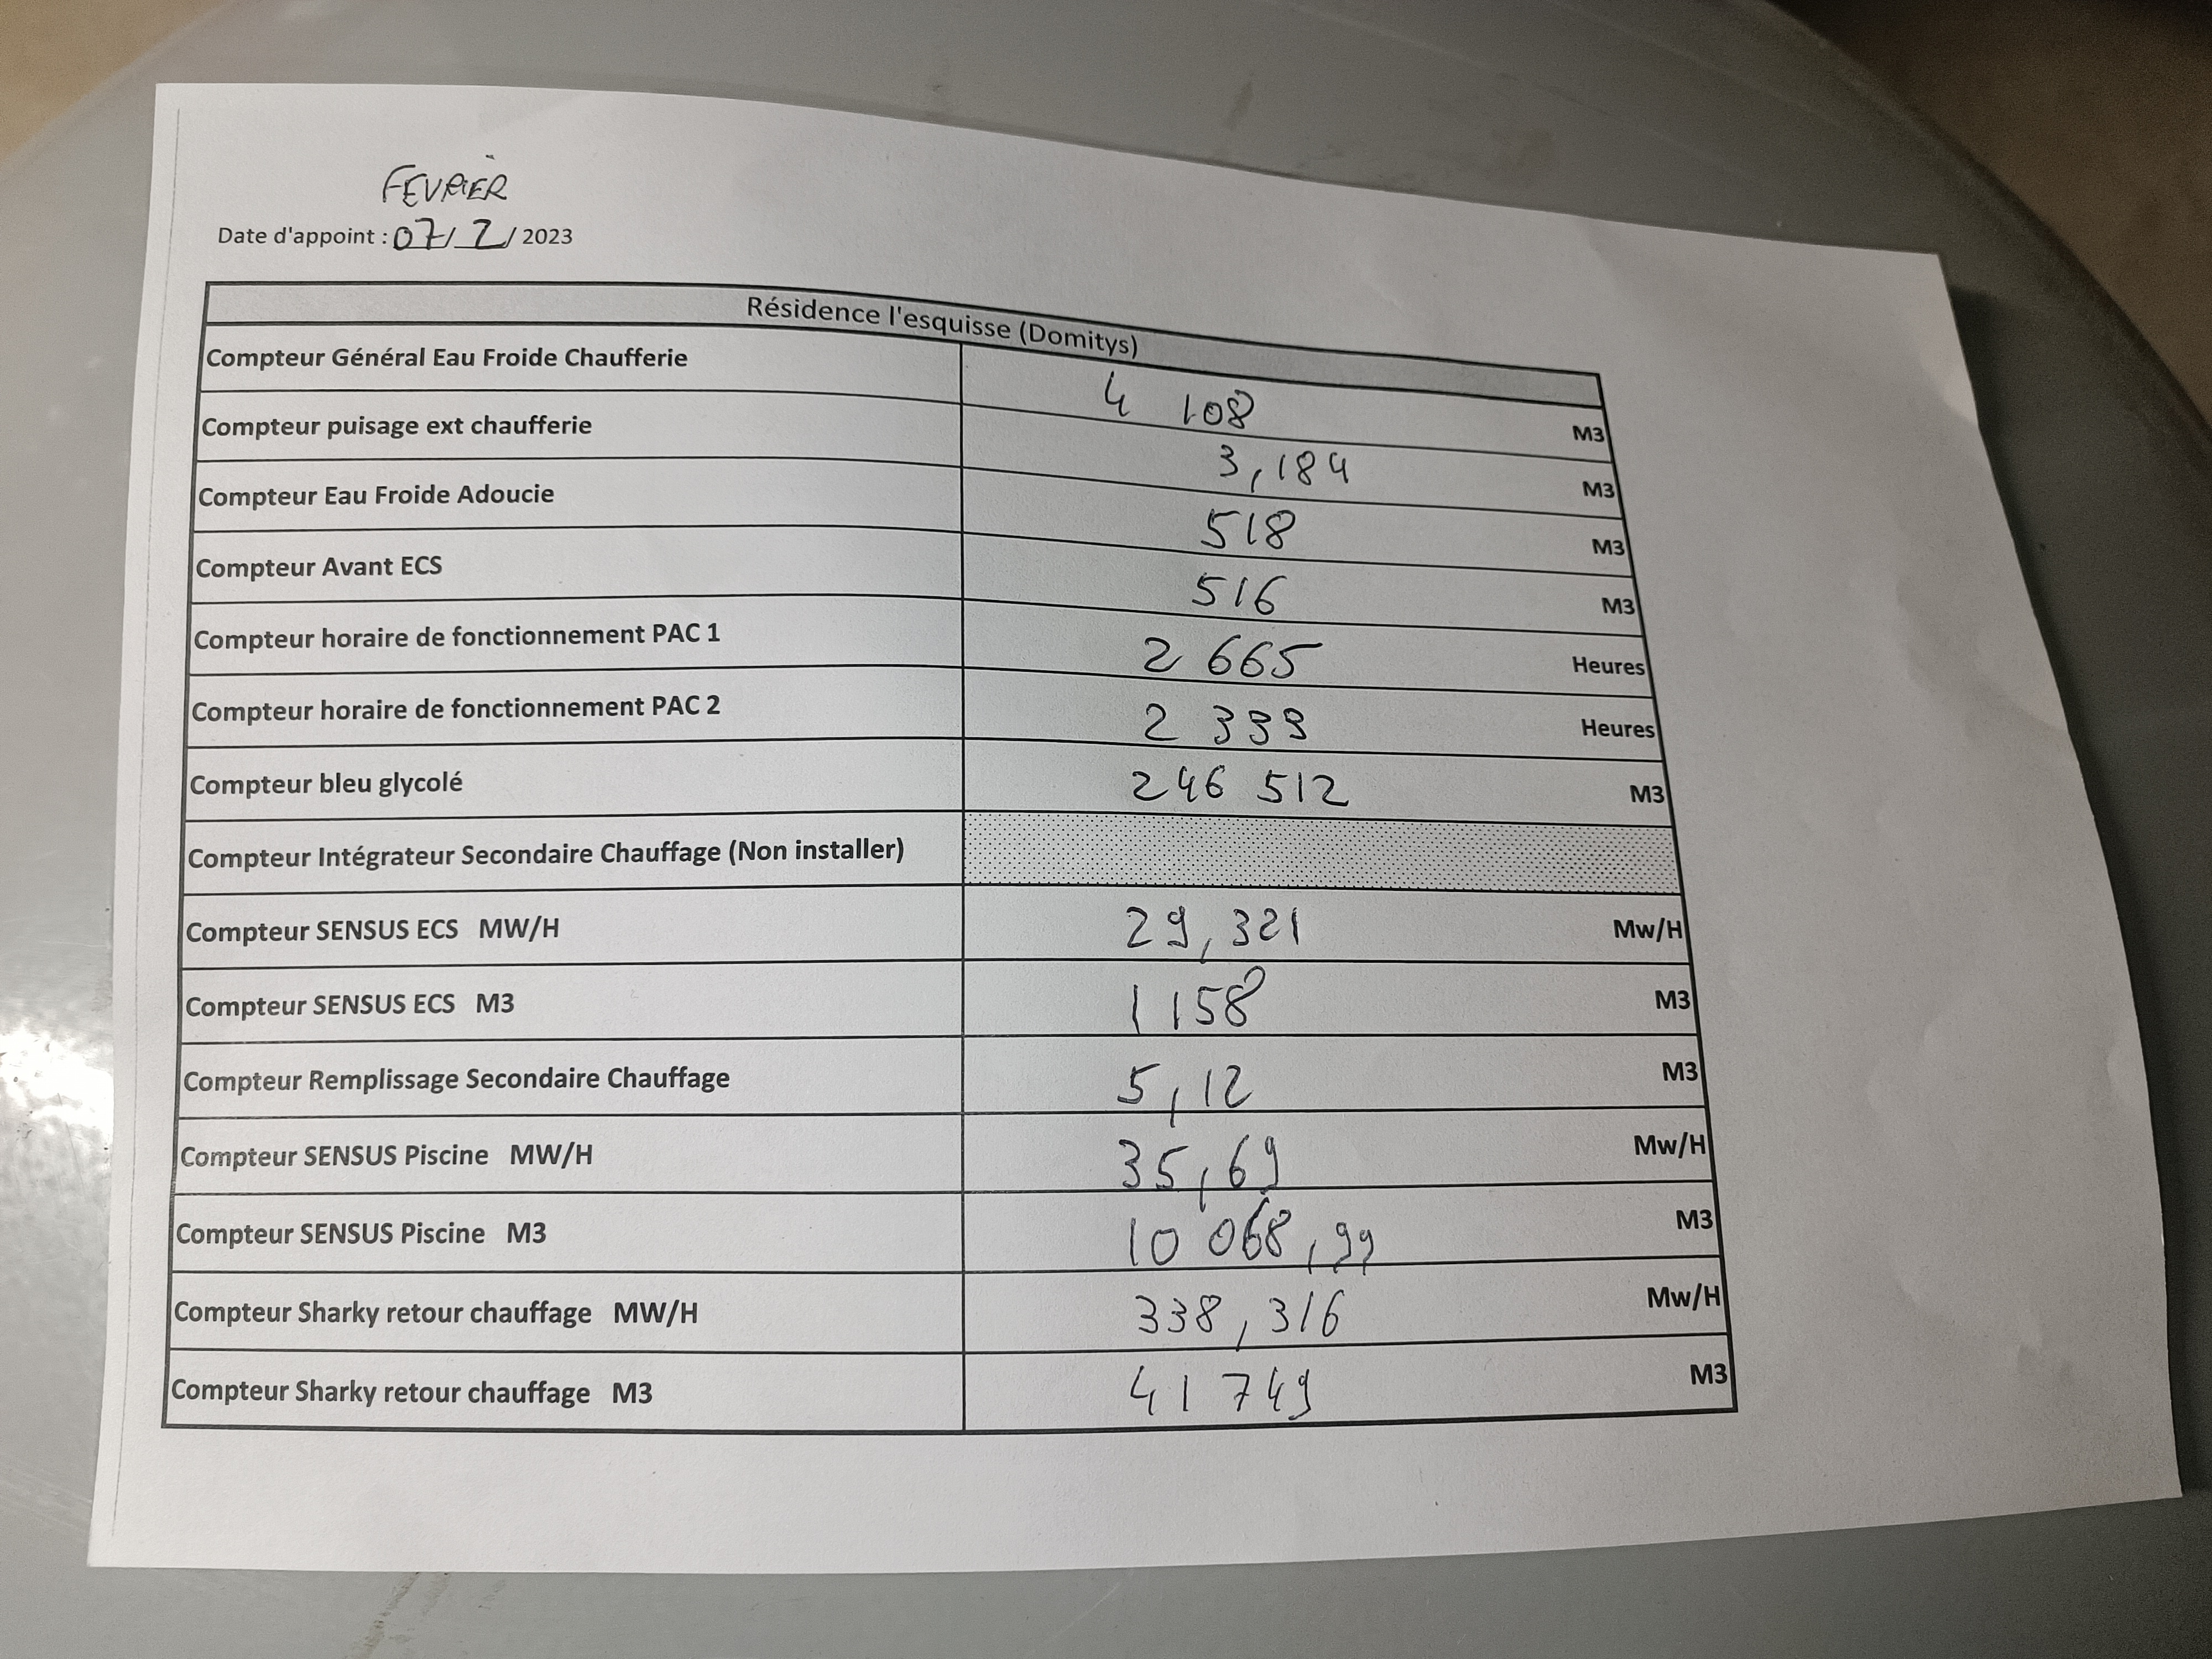 FEVRIER
Date d'appoint : 07/ 2/ 2023
Résidence l'esquisse (Domitys)
Compteur Général Eau Froide Chaufferie 4 108 M3
Compteur puisage ext chaufferie 3,184 M3
Compteur Eau Froide Adoucie 518 M3
Compteur Avant ECS 516 M3
Compteur horaire de fonctionnement PAC 1 2 665 Heures
Compteur horaire de fonctionnement PAC 2 2 399 Heures
Compteur bleu glycolé 246 512 M3
Compteur Intégrateur Secondaire Chauffage (Non installer)
Compteur SENSUS ECS MW/H 29,321 Mw/H
Compteur SENSUS ECS M3 1 158 M3
Compteur Remplissage Secondaire Chauffage 5,12 M3
Compteur SENSUS Piscine MW/H 35,69 Mw/H
Compteur SENSUS Piscine M3 10 068,99 M3
Compteur Sharky retour chauffage MW/H 338,316 Mw/H
Compteur Sharky retour chauffage M3 41 749 M3